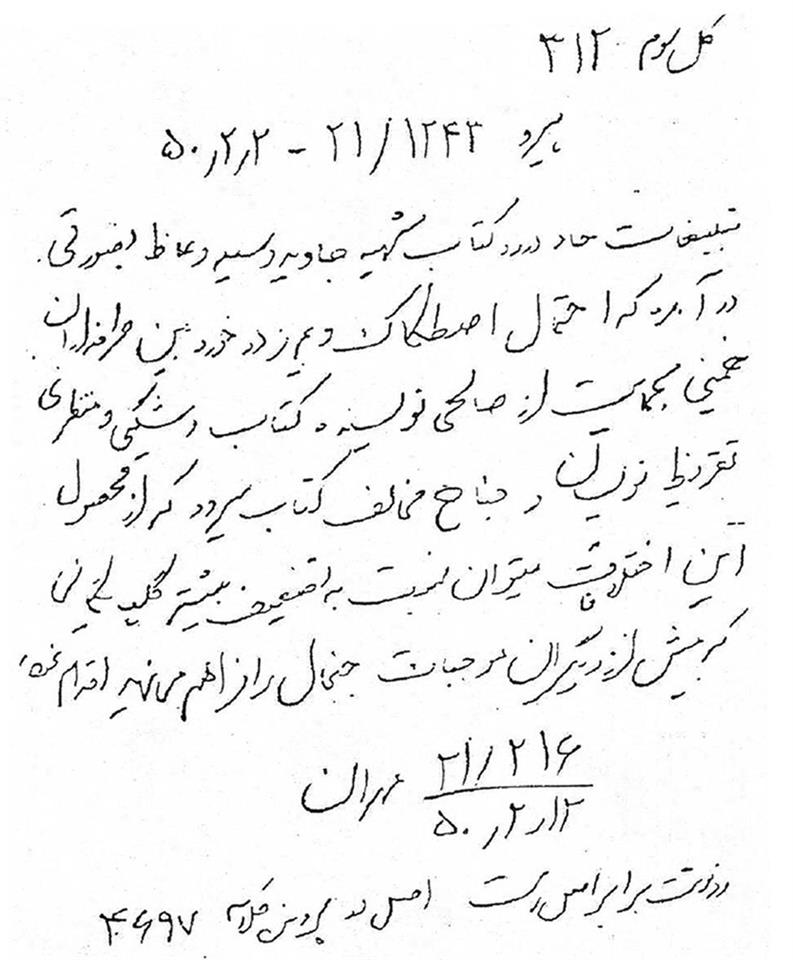 کل سوم ۳۱۲
پیرو ۲۱/۱۲۴۳ - ۵۰٫۲٫۲
تبلیغات حاد درباره کتاب شهید جاوید وسیله وعاظ بصورتی
در آمده که احتمال اصطکاک و بروز زد و خورد بین طرفداران
خمینی بحمایت از صالحی نویسنده کتاب و مشکینی و منتظری
تقریظ نویسان و جناح مخالف کتاب میرود که از محصول
این اختلافات میتوان نسبت به تضعیف بیشتر کلیه
که بیش از دیگران موجبات جنجال را فراهم می‌نمایند اقدام نمود
۲۱/۲۱۶ مهران
۵۰٫۲٫۱۲
رونوشت برابر اصل است اصل در پرونده کلاسه ۴۶۹۷